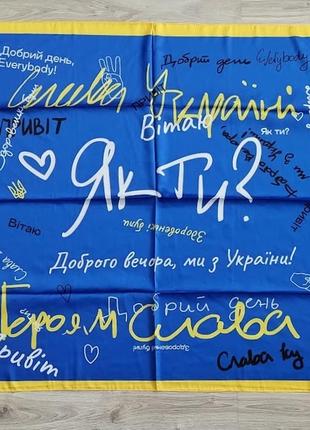 Добрий день,
Everybody!
Добрий день Everybody
Слава Україні
ПРИВІТ
Вітаю
Як ти?
Як ти?
Привіт
Вітаю
Здоровенькі були
Доброго вечора, ми з України!
Слава
Добрий день
Героям Слава
Привіт
Здоровенькі були!
Слава